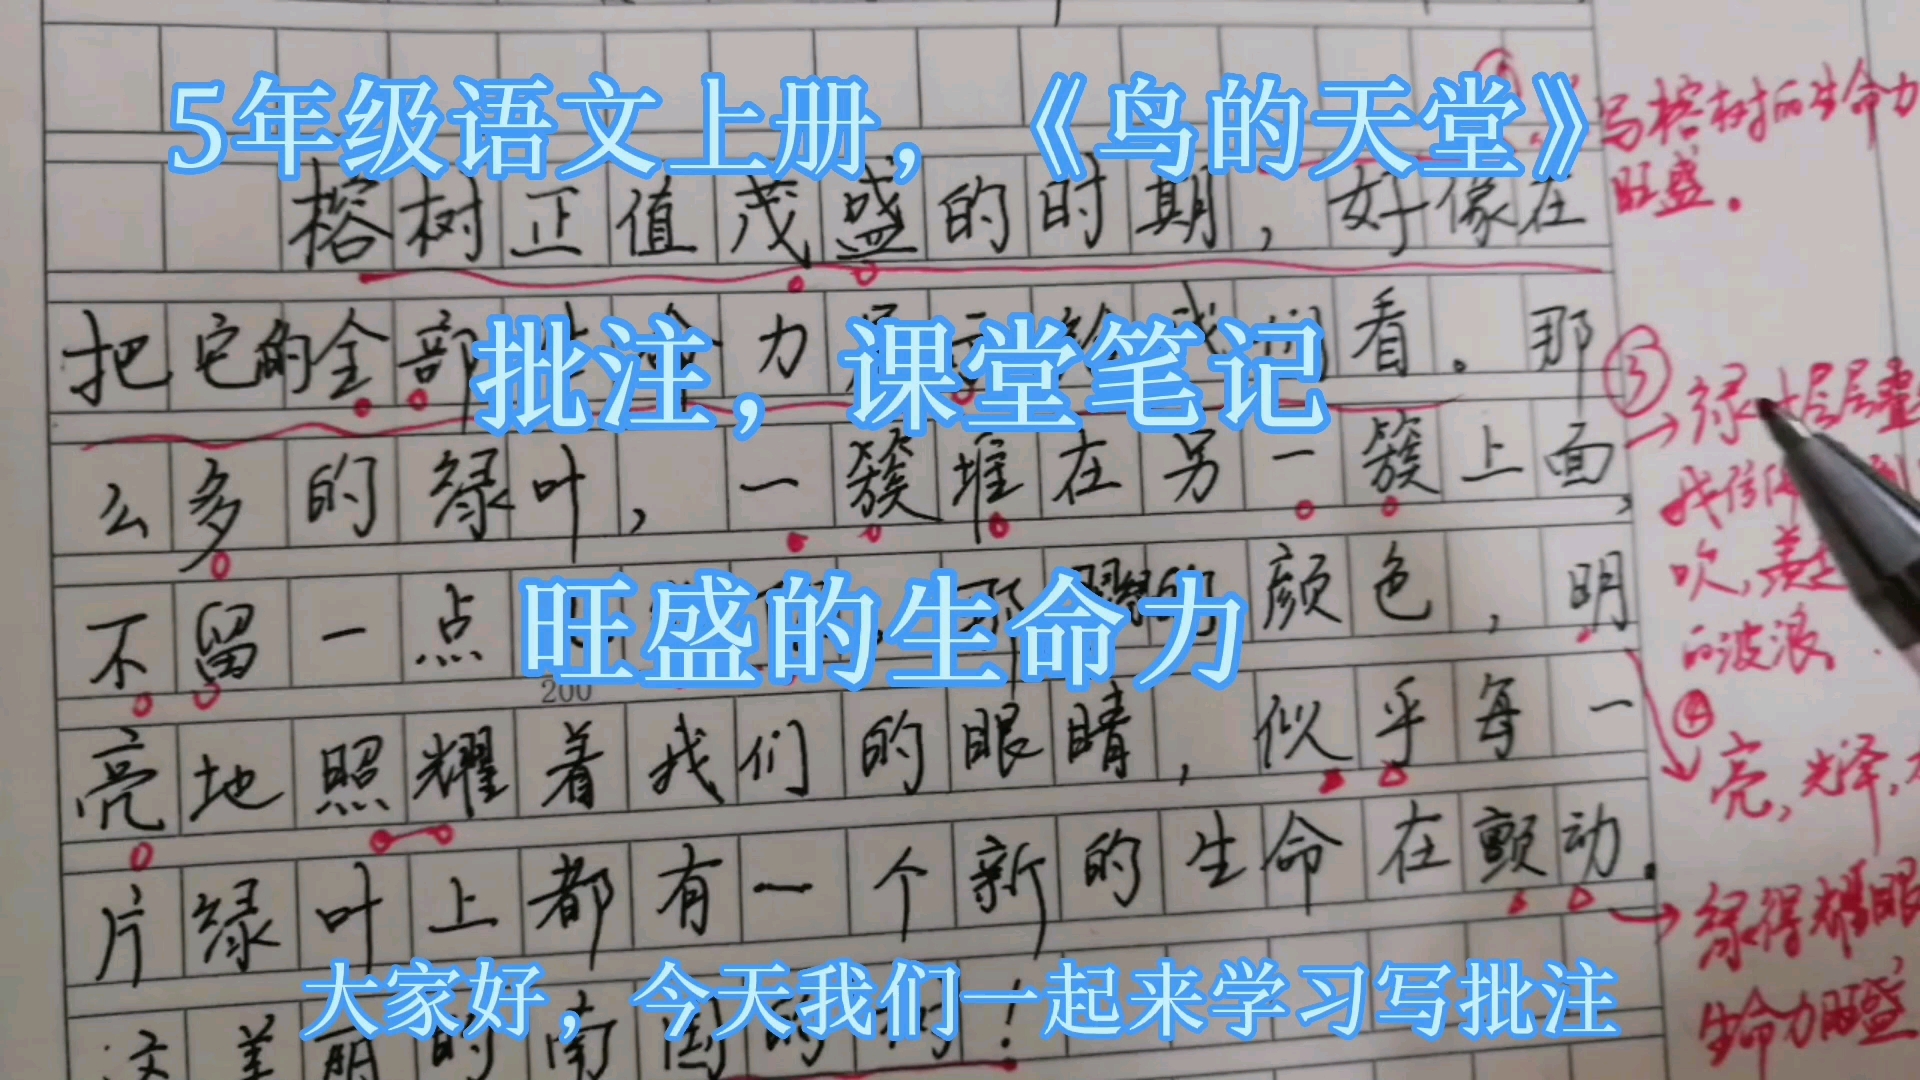 5年级语文上册，《鸟的天堂》
写榕树的生命力
旺盛。
榕树正值茂盛的时期，好像在
把它的全部 力 看。那
批注，课堂笔记
③
么多的绿叶，一簇堆在另一簇上面，
不留一点 颜色，明
旺盛的生命力
200
的波浪
④
亮地照耀着我们的眼睛，似乎每一
亮，光泽，
片绿叶上都有一个新的生命在颤动。
绿得耀眼
大家好，今天我们一起来学习写批注
生命力旺盛
这美丽的南国的树！